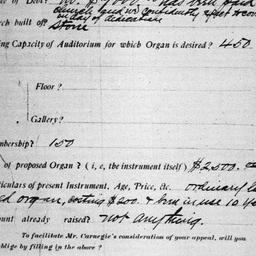 of Debt?
church
on day of dedication
rch built of? Stone
ng Capacity of Auditorium for which Organ is desired? 450.
Floor?
Gallery?
mbership? 150
of proposed Organ? (i, e, the instrument itself) $2,500.
ticulars of present Instrument, Age, Price, etc. ordinary
ed organ, costing $200. & been in use 10 ye
ount already raised? not anything.
To facilitate Mr. Carnegie's consideration of your appeal, will you
blige by filling in the above?